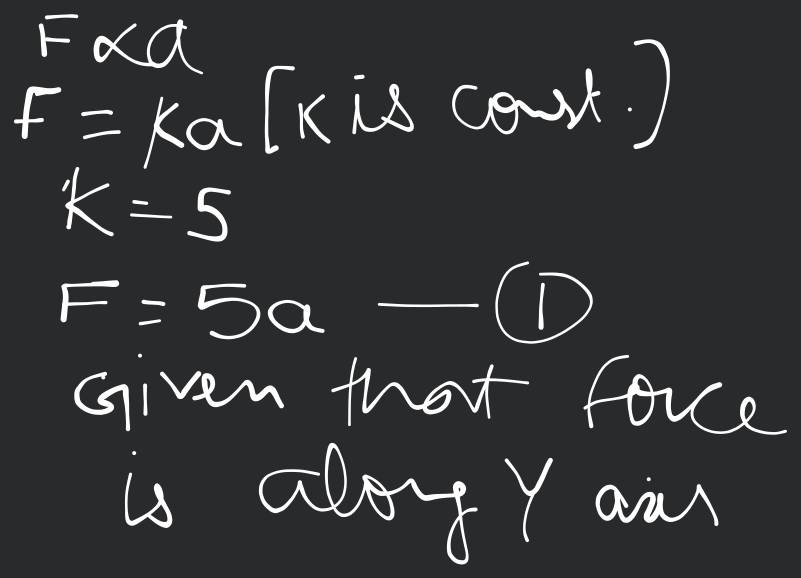 F ∝ a
F = Ka [K is const.]
K = 5
F = 5a — ①
Given that force
is along Y axis